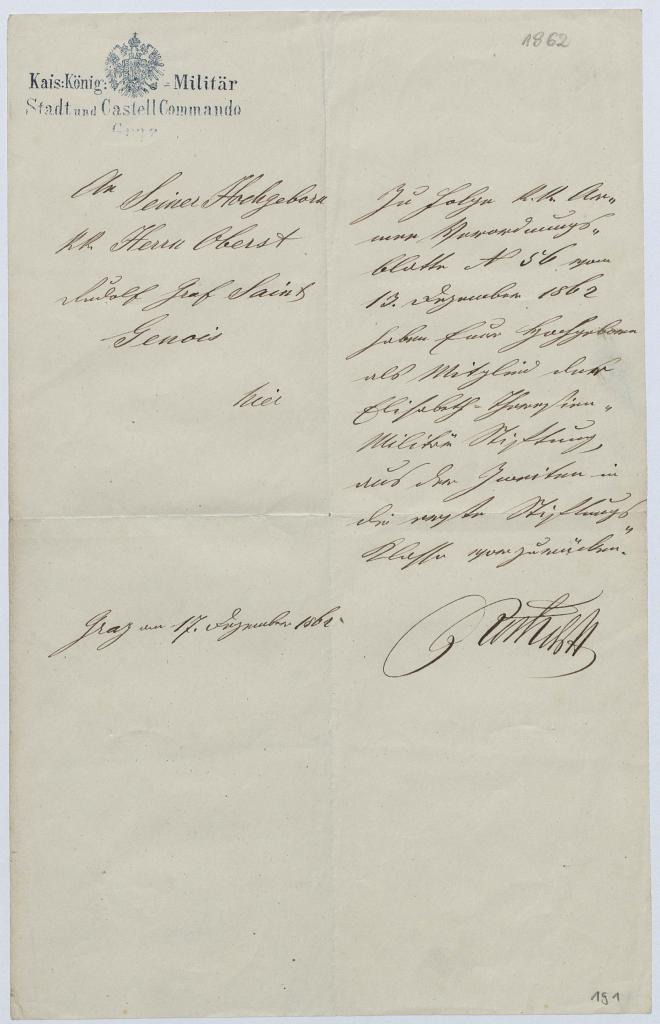 1862
Kais:König: = Militär
Stadt und Castell Commando
Graz
An Seiner Hochgeborn
KK Herrn Oberst
Rudolf Graf Saint
Genois
hier
Zu Folge K.K. Ar„
mee Verordnungs„
blatte N 56 vom
13. Dezember 1862
haben Euer Hochgeboren
als Mitglied der
Elisabeth-Theresien„
Militär Stiftung,
aus der Zweiten in
die erste Stiftungs„
Klasse vorzurücken.
Graz am 17. Dezember 1862.
191